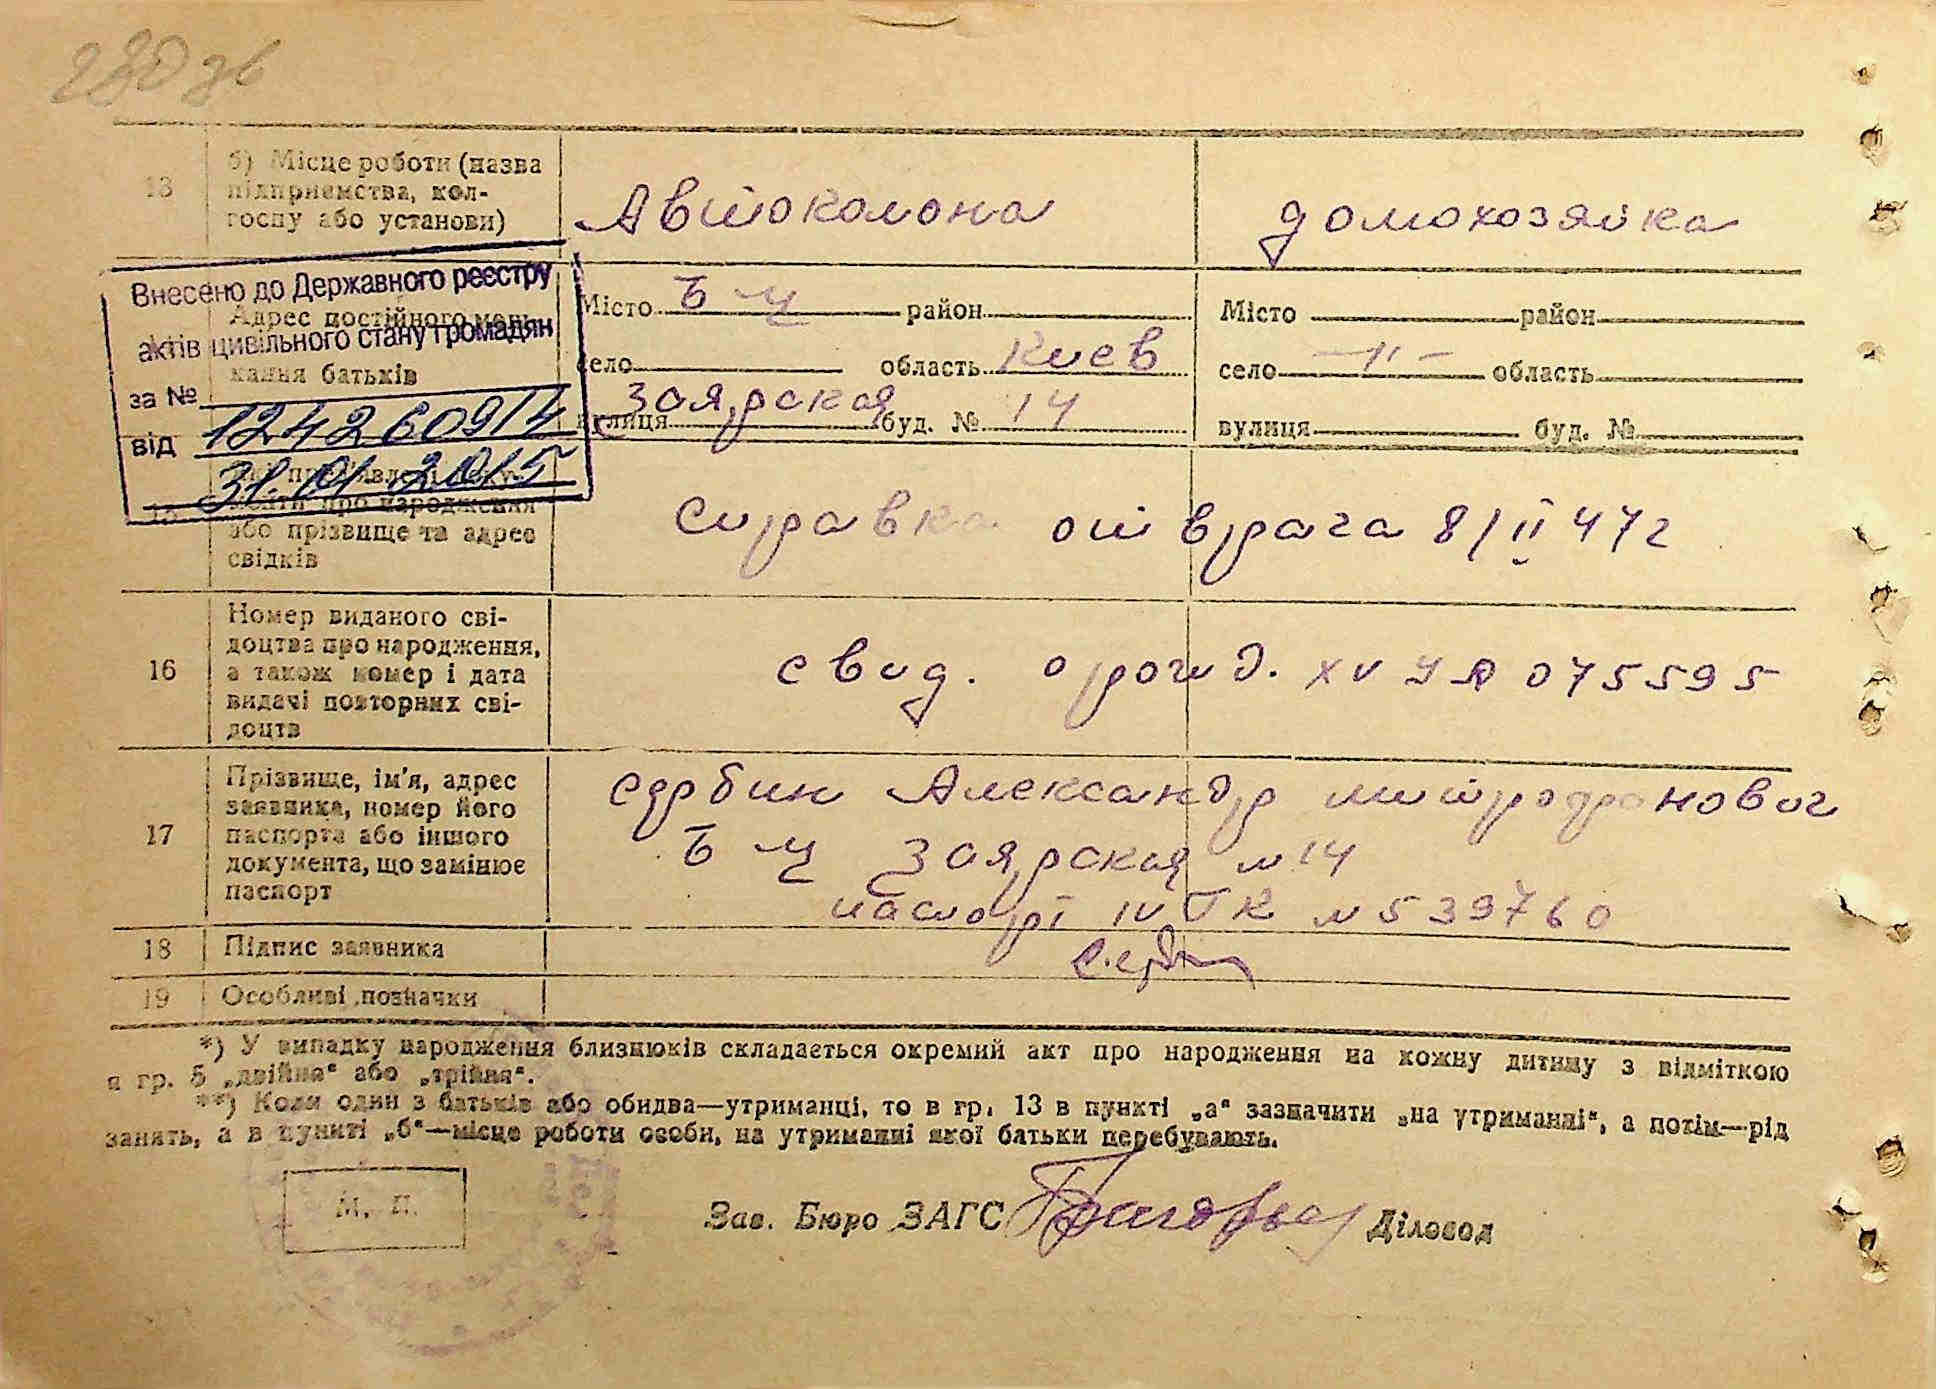 280 зв
13
б) Місце роботи (назва
підприємства, кол-
госпу або установи)
Автоколона
домохозяйка
Внесено до Державного реєстру
актів цивільного стану громадян
за № 12426091 4
від 31.01.2015
Адрес постійного меш-
кання батьків
Місто Б Ц район
село область Киев
вулиця Заярская буд. № 14
Місто район
село —"— область
вулиця буд. №
15
менти про народження
або прізвище та адрес
свідків
справка от врача 8/II 47г
16
Номер виданого сві-
доцтва про народження,
а також номер і дата
видачі повторних сві-
доцтв
свид. о рожд. XV УЯ 075595
17
Прізвище, ім'я, адрес
заявника, номер його
паспорта або іншого
документа, що замінює
паспорт
Сербин Александр Митрофанович
Б Ц Заярская №14
паспорт IV ТК №539760
18
Підпис заявника
19
Особливі позначки
*) У випадку народження близнюків складається окремий акт про народження на кожну дитину з відміткою
в гр. 5 „двійня“ або „трійня“.
**) Коли один з батьків або обидва—утриманці, то в гр. 13 в пункті „а“ зазначити „на утриманні“, а потім—рід
занять, а в пункті „б“—місце роботи особи, на утриманні якої батьки перебувають.
М. П.
Зав. Бюро ЗАГС
Діловод